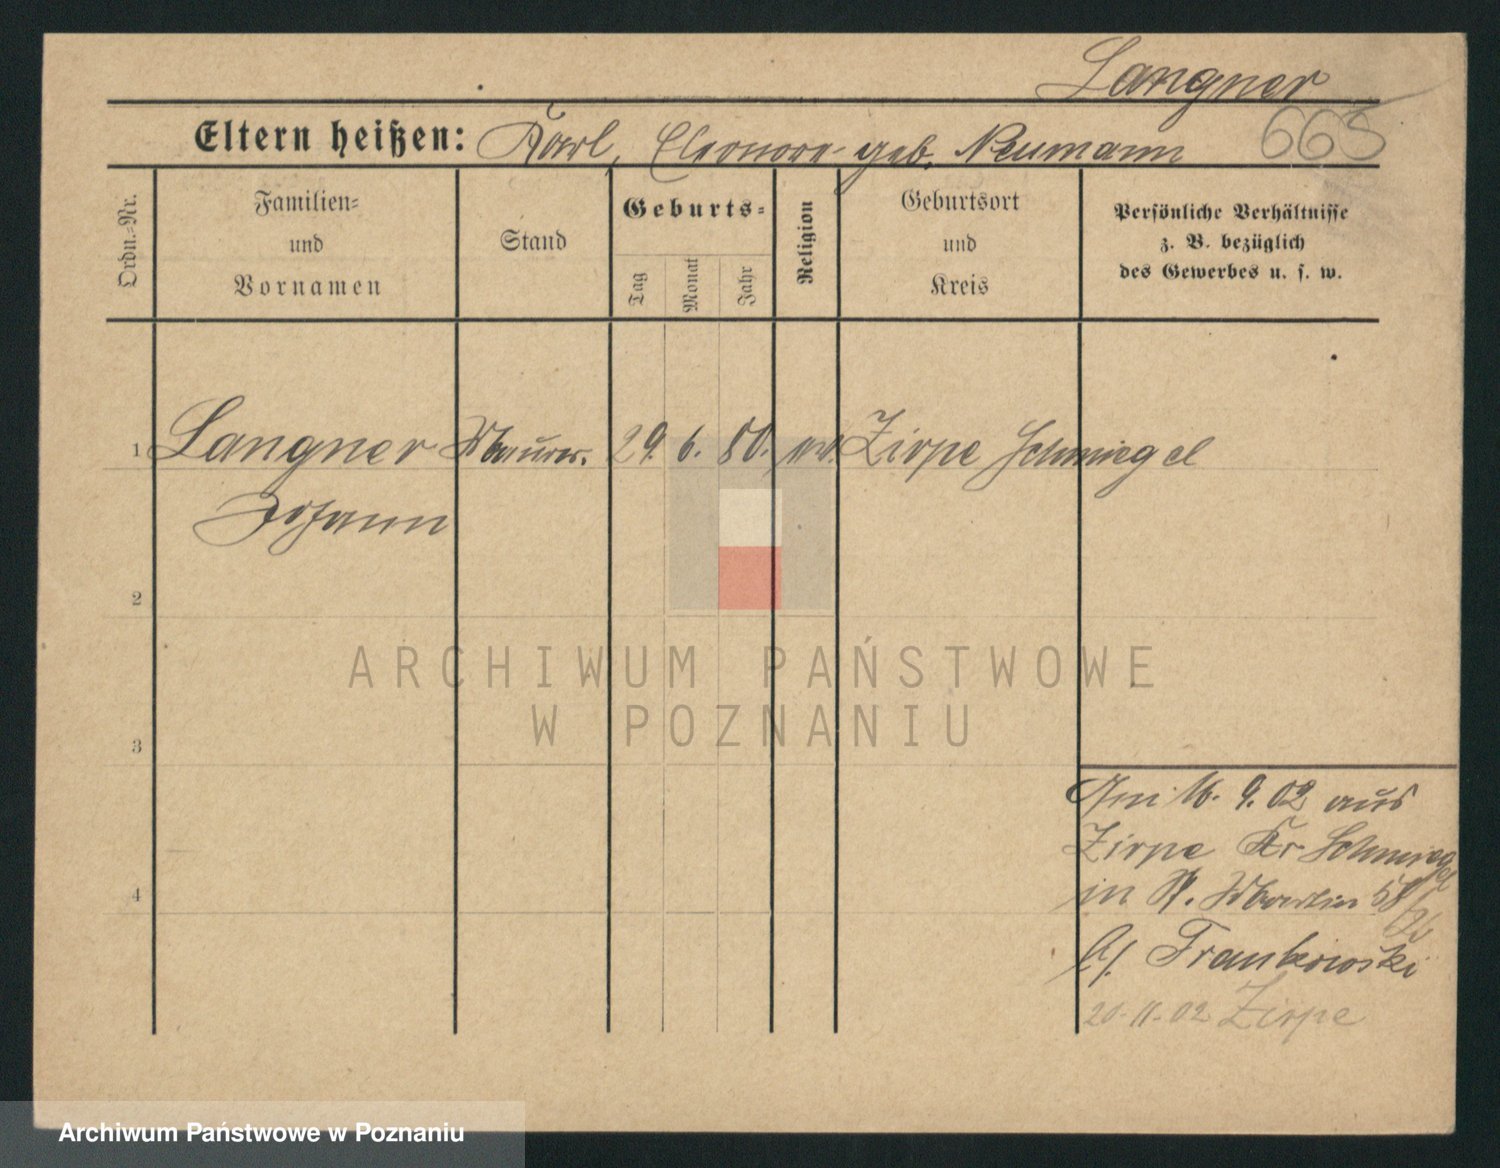 Langner
Eltern heißen: Karl, Eleonore geb. Neumann 665
Ordn.-Nr.
Familien-
und
Vornamen
Stand
Geburts-
Tag
Monat
Jahr
Religion
Geburtsort
und
Kreis
Persönliche Verhältnisse
z. B. bezüglich
des Gewerbes u. s. w.
1 Langner Maurer. 29. 6. 80. Zirpe Schmiegel
Johann
2
3
4
Am 16. 9. 02 aus
Zirpe Kr Schmiegel
in St. Martin 58
b/. Frankowski
20.11.02 Zirpe
ARCHIWUM PAŃSTWOWE
W POZNANIU
Archiwum Państwowe w Poznaniu